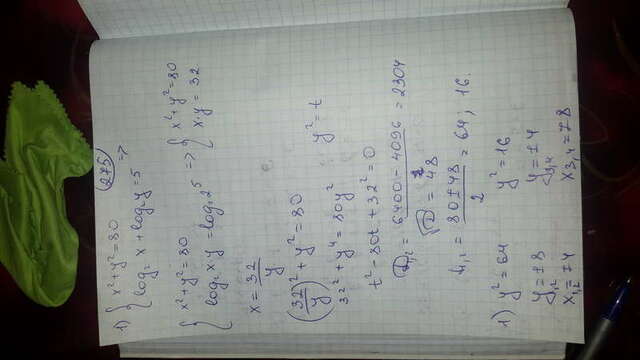 275
1) { x² + y² = 80
log₂ x + log₂ y = 5 =>
{ x² + y² = 80
log₂ x y = log₂ 2⁵ => { x² + y² = 80
x · y = 32
x = 32/y
(32/y)² + y² = 80
32² + y⁴ = 80y² y² = t
t² - 80t + 32² = 0
D = 6400 - 4096 = 2304
√D = 48
t₁,₂ = (80 ± 48)/2 = 64; 16.
1) y² = 64 y² = 16
y₁,₂ = ±8 y₃,₄ = ±4
x₁,₂ = ±4 x₃,₄ = ±8